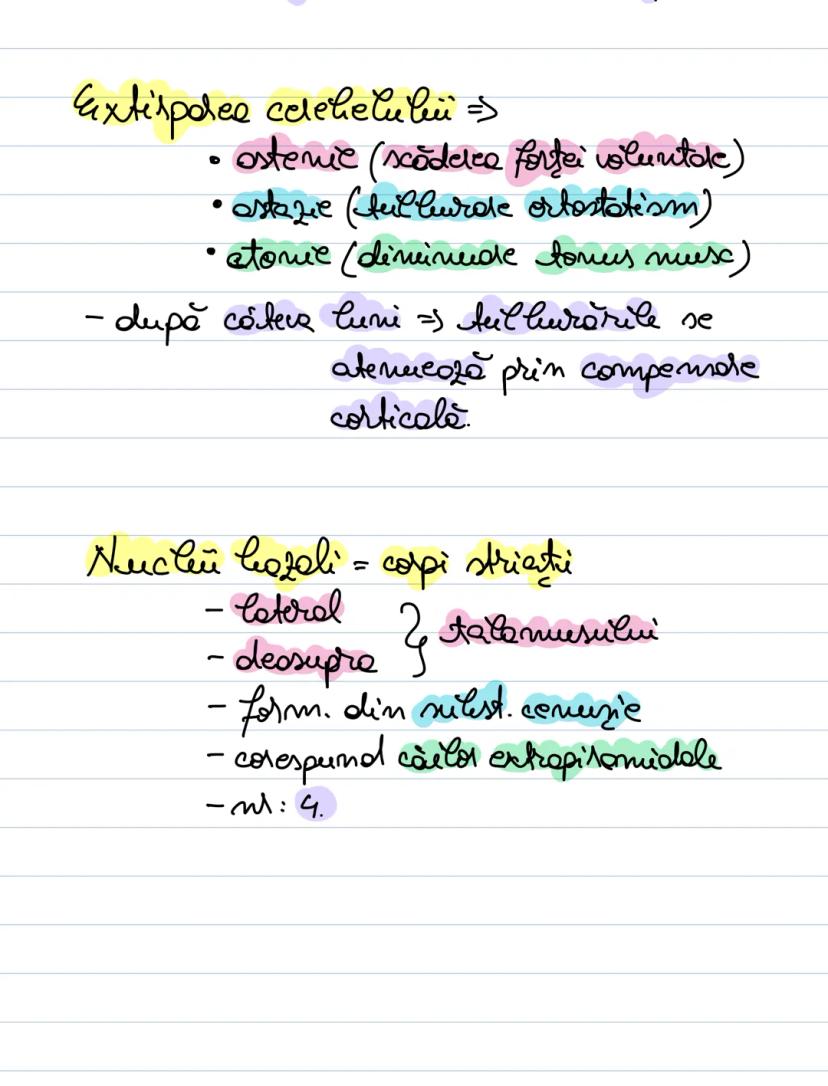 Extirparea cerebelului =>
• astenie (scăderea forței voluntare)
• astazie (tulburare ortostatism)
• atonie (diminuare tonus musc)
- după câteva luni => tulburările se
atenuează prin compensare
corticală.
Nucleii bazali = corpi striați
- lateral
- deasupra } talamusului
- form. din subst. cenușie
- corespund căilor extrapiramidale
- nr: 4.